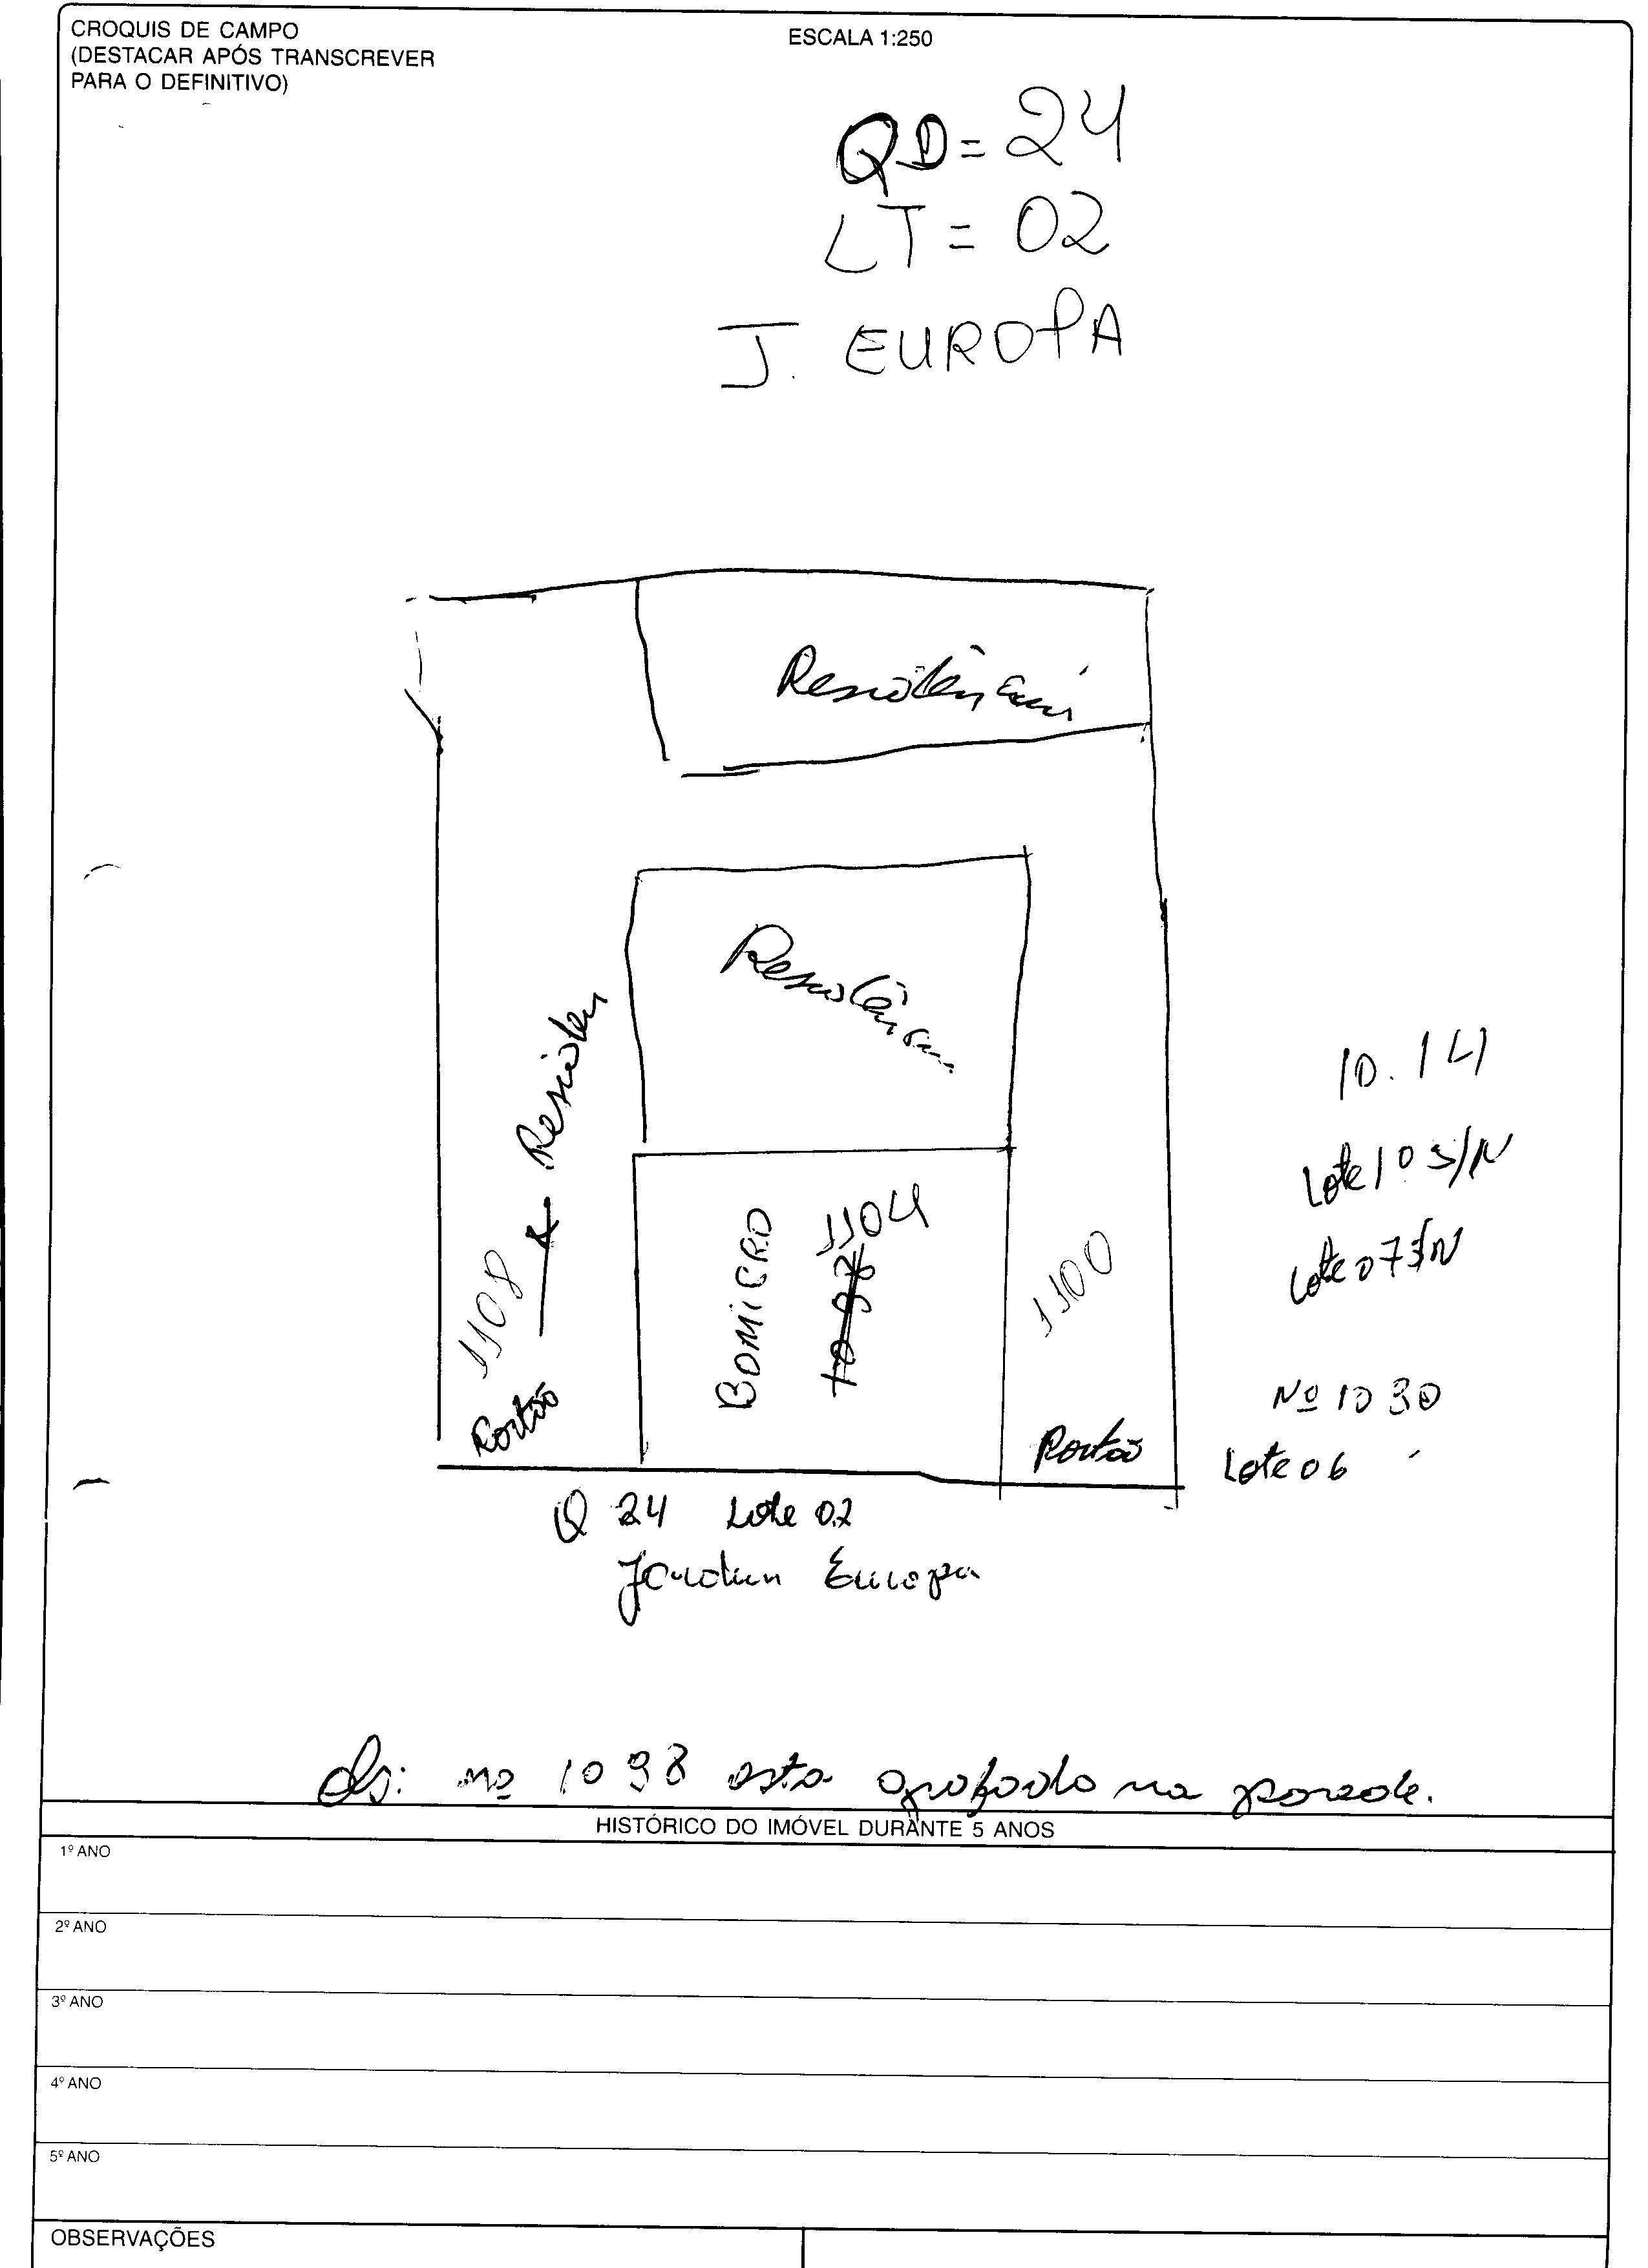 CROQUIS DE CAMPO
(DESTACAR APÓS TRANSCREVER
PARA O DEFINITIVO)
ESCALA 1:250
QD = 24
LT = 02
J. EUROPA
Residência
Residência
Residen
1108
Portão
1104
1098
1100
Portão
10.14
Lote 10 S/N
Lote 07 S/N
Nº 1090
Lote 06
Q 24 Lote 02
Jardim Europa
nº 1098 esta grafado na parede.
HISTÓRICO DO IMÓVEL DURANTE 5 ANOS
1º ANO
2º ANO
3º ANO
4º ANO
5º ANO
OBSERVAÇÕES